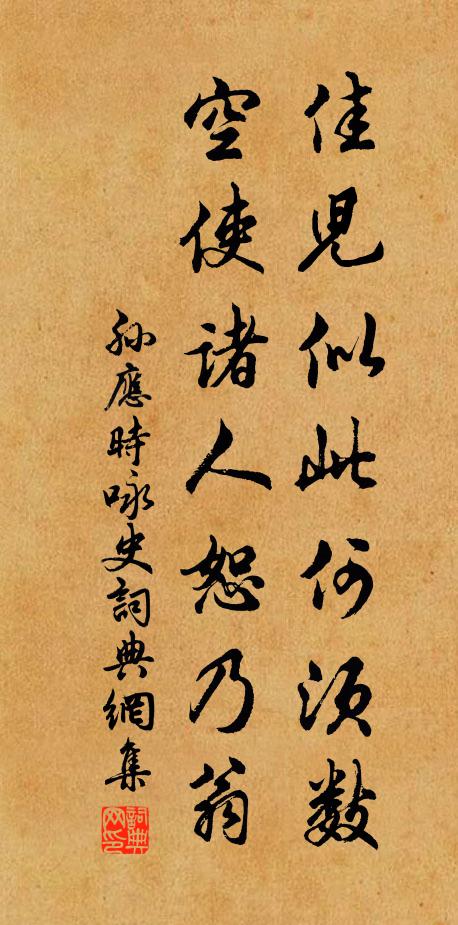 佳児似此何須數
空使諸人恕乃翁
孫應時咏史詞典網集
詞典網印